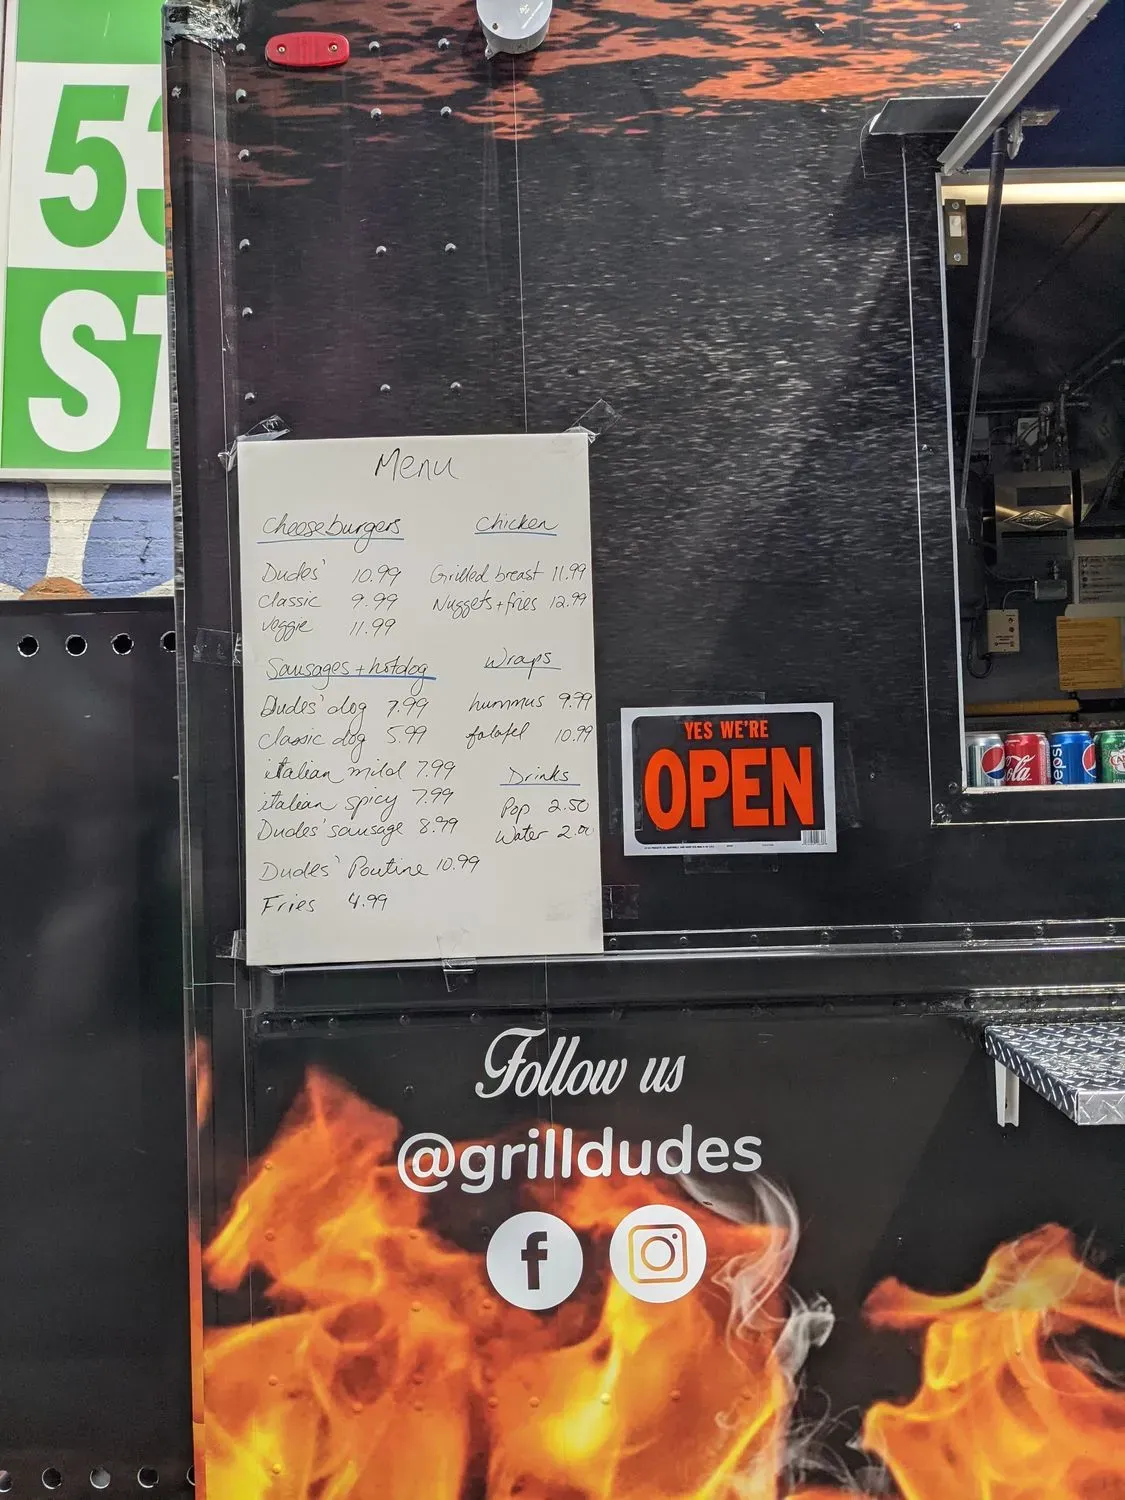 53
ST
Menu
Cheeseburgers
Dudes' 10.99
Classic 9.99
Veggie 11.99
Sausages + hotdog
Dudes' dog 7.99
Classic dog 5.99
italian mild 7.99
italian spicy 7.99
Dudes' sausage 8.99
Dudes' Poutine 10.99
Fries 4.99
Chicken
Grilled breast 11.99
Nuggets + fries 12.99
Wraps
hummus 9.99
falafel 10.99
Drinks
Pop 2.50
Water 2.00
YES WE'RE
OPEN
pepsi
Follow us
@grilldudes